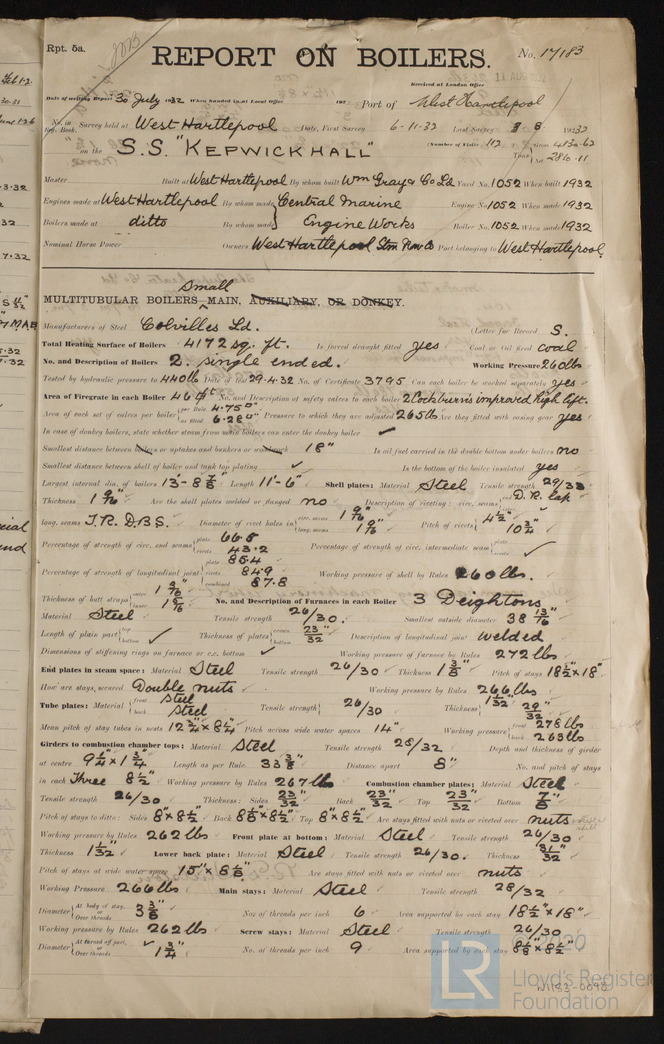 Rpt. 5a.
REPORT ON BOILERS.
No. 17183
Received at London Office
Date of writing Report 30 July 1932 When handed in at Local Office 193 Port of West Hartlepool
No. in Reg. Book. Survey held at West Hartlepool Date, First Survey 6-11-32 Last Survey 8 8 1932
on the S.S. "KEPWICKHALL" (Number of Visits 112 Gross 4830.62
Tons Net 2810.11
Master Built at West Hartlepool By whom built Wm Gray & Co Ld Yard No. 1052 When built 1932
Engines made at West Hartlepool By whom made Central Marine Engine No. 1052 When made 1932
Boilers made at ditto By whom made Engine Works Boiler No. 1052 When made 1932
Nominal Horse Power Owners West Hartlepool Stm Nav Co Port belonging to West Hartlepool
small
MULTITUBULAR BOILERS MAIN, AUXILIARY, OR DONKEY.
Manufacturers of Steel Colvilles Ld. (Letter for Record S.
Total Heating Surface of Boilers 4172 sq. ft. Is forced draught fitted yes Coal or Oil fired coal
No. and Description of Boilers 2. single ended. Working Pressure 260 lbs
Tested by hydraulic pressure to 440 lbs Date of test 29.4.32 No. of Certificate 3795 Can each boiler be worked separately yes
Area of Firegrate in each Boiler 46 No. and Description of safety valves to each boiler 2 Cockburn's improved high lift.
Area of each set of valves per boiler per Rule 4.75" as fitted 6.28" Pressure to which they are adjusted 265 lbs Are they fitted with easing gear yes
In case of donkey boilers, state whether steam from main boilers can enter the donkey boiler ✓
Smallest distance between boilers or uptakes and bunkers or woodwork 18" Is oil fuel carried in the double bottom under boilers no
Smallest distance between shell of boiler and tank top plating ✓ Is the bottom of the boiler insulated yes
Largest internal dia. of boilers 13'-8 7/8" Length 11'-6" Shell plates: Material Steel Tensile strength 29/33
Thickness 1 9/16" Are the shell plates welded or flanged no Description of riveting: circ. seams D.R. Lap
long. seams T.R. D.B.S. Diameter of rivet holes in circ. seams 1 9/16" long. seams 1 9/16" Pitch of rivets 4 1/2" 10 3/4"
Percentage of strength of circ. end seams plate 66.8 rivets 43.2 Percentage of strength of circ. intermediate seam plate rivets ✓
Percentage of strength of longitudinal joint plate 85.4 rivets 84.9 combined 87.8 Working pressure of shell by Rules 260 lbs.
Thickness of butt straps outer 1 3/16" inner 1 5/16" No. and Description of Furnaces in each Boiler 3 Deightons
Material Steel Tensile strength 26/30. Smallest outside diameter 38 13/16"
Length of plain part top bottom ✓ Thickness of plates crown bottom 23/32" Description of longitudinal joint welded
Dimensions of stiffening rings on furnace or c.c. bottom ✓ Working pressure of furnace by Rules 272 lbs
End plates in steam space: Material Steel Tensile strength 26/30 Thickness 1 3/8" Pitch of stays 18 1/2" x 18"
How are stays secured Double nuts Working pressure by Rules 266 lbs
Tube plates: Material front Steel back Steel Tensile strength 26/30 Thickness 1 1/32" 29/32"
Mean pitch of stay tubes in nests 12 3/4" x 8 1/4" Pitch across wide water spaces 14" Working pressure front 278 lbs back 263 lbs
Girders to combustion chamber tops: Material Steel Tensile strength 28/32 Depth and thickness of girder
at centre 9 1/4" x 1 3/4" Length as per Rule 33 3/8" Distance apart 8" No. and pitch of stays
in each Three 8 1/2" Working pressure by Rules 267 lbs Combustion chamber plates: Material Steel
Tensile strength 26/30 Thickness: Sides 23/32" Back 23/32" Top 23/32" Bottom 7/8"
Pitch of stays to ditto: Sides 8" x 8 1/2" Back 8 1/8" x 8 1/2" Top 8" x 8 1/2" Are stays fitted with nuts or riveted over nuts
Working pressure by Rules 262 lbs Front plate at bottom: Material Steel Tensile strength 26/30
Thickness 1 1/32" Lower back plate: Material Steel Tensile strength 26/30. Thickness 31/32"
Pitch of stays at wide water space 15" x 8 5/8" Are stays fitted with nuts or riveted over nuts
Working Pressure 266 lbs Main stays: Material Steel Tensile strength 28/32
Diameter At body of stay, or Over threads 3 3/8" No. of threads per inch 6 Area supported by each stay 18 1/2" x 18"
Working pressure by Rules 262 lbs Screw stays: Material Steel Tensile strength 26/30
Diameter At turned off part, or Over threads ✓ 1 3/4" No. of threads per inch 9 Area supported by each stay 8 1/8" x 8 1/2"
© 2020
LR
Lloyd's Register
Foundation
W1193-0090